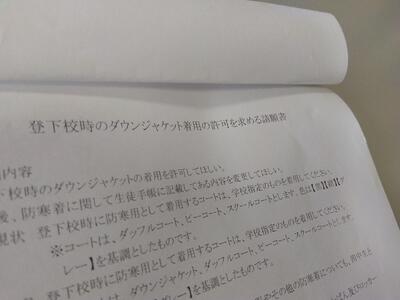 登下校時のダウンジャケット着用の許可を求める請願書
内容
下校時のダウンジャケットの着用を許可してほしい。
後、防寒着に関して生徒手帳に記載してある内容を変更してほしい。
現状 登下校時に防寒用として着用するコートは、学校指定のものを着用してください。
※コートは、ダッフルコート、ピーコート、スクールコートとします。色は【黒】【紺】【グ
レー】を基調としたものです。
登下校時に防寒用として着用するコートは、学校指定のものを着用してください。
コートは、ダウンジャケット、ダッフルコート、ピーコート、スクールコートとします。
を基調としたものです。
その他の防寒着についても、